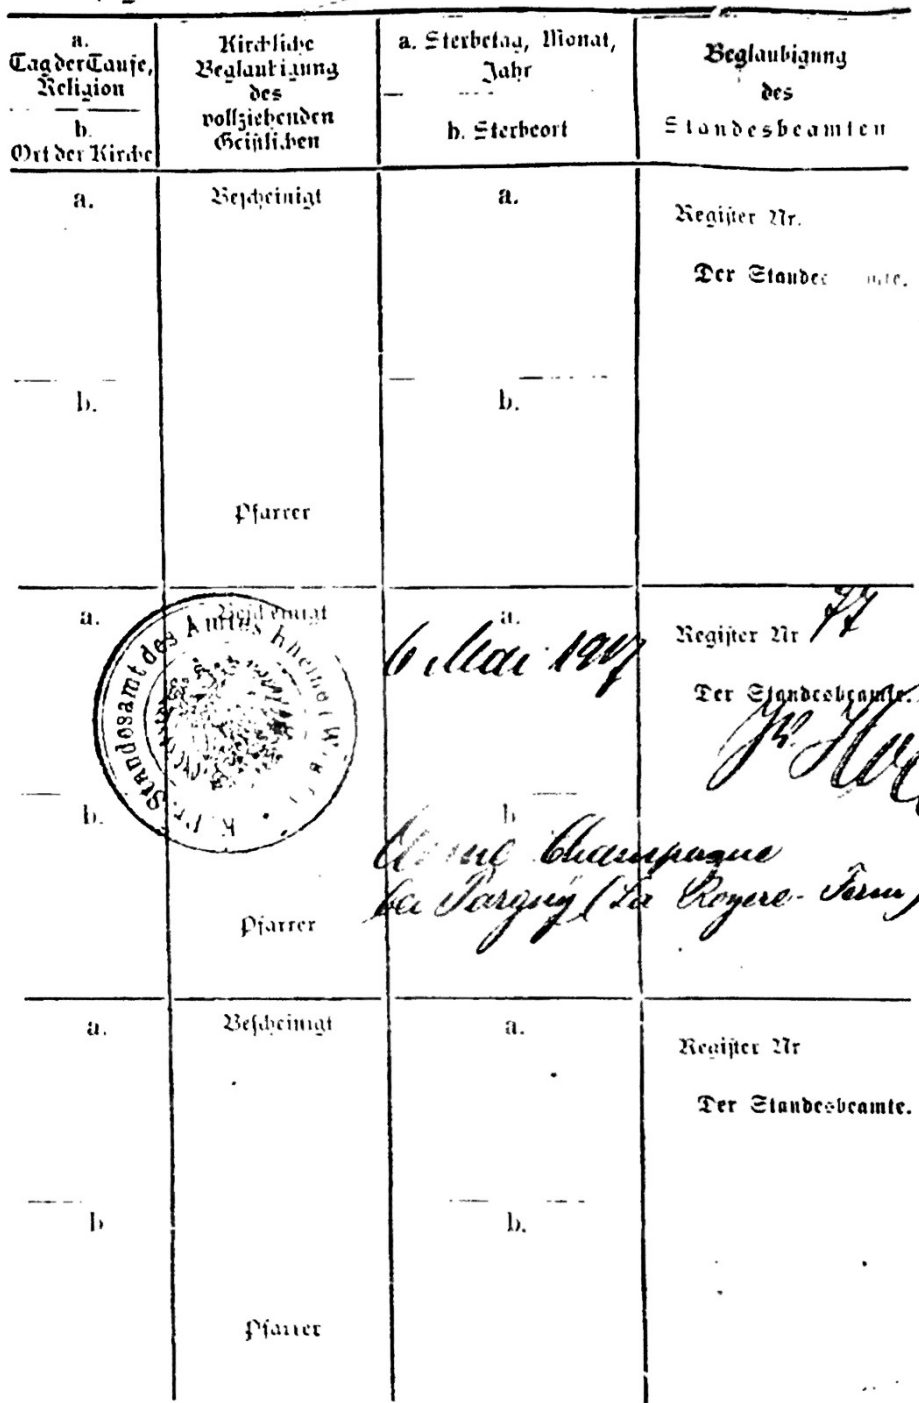 a.
Tag der Taufe,
Religion
b.
Ort der Kirche
Kirchliche
Beglaubigung
des
vollziehenden
Geistlichen
a. Sterbetag, Monat,
Jahr
b. Sterbeort
Beglaubigung
des
Standesbeamten
a.
b.
Bescheinigt
Pfarrer
a.
b.
Register Nr.
Der Standesbeamte.
a.
b.
Bescheinigt
Pfarrer
K. Pr. Standesamt des Amtes
a.
6 Mai 1917
b
Champagne
bei Pargny (La Royere-Ferm)
Register Nr 77
Der Standesbeamte.
a.
b
Bescheinigt
Pfarrer
a.
b.
Register Nr
Der Standesbeamte.